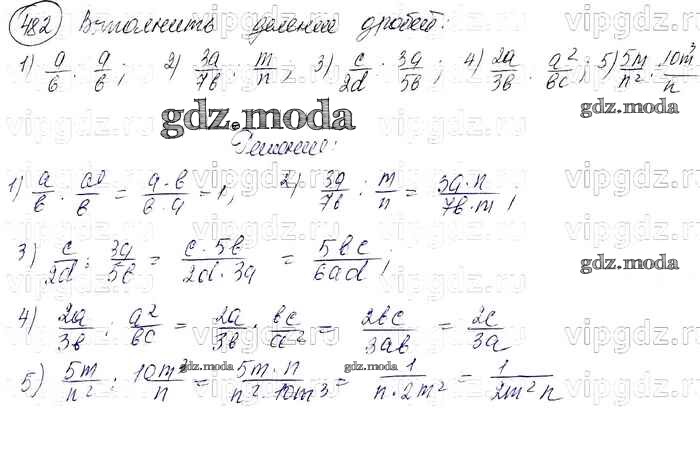 482 Выполнить деление дробей:
1) a/b : a/b; 2) 3a/7b : m/n; 3) c/2d : 3a/5b; 4) 2a/3b : a²/bc; 5) 5m/n² : 10m³/n
gdz.moda
Решение:
1) a/b : a/b = a·b/b·a = 1; 2) 3a/7b : m/n = 3a·n/7b·m;
3) c/2d : 3a/5b = c·5b/2d·3a = 5bc/6ad;
gdz.moda
4) 2a/3b : a²/bc = 2a/3b · bc/a² = 2bc/3ab = 2c/3a
5) 5m/n² : 10m³/n = 5m·n/n²·10m³ = 1/n·2m² = 1/2m²n
gdz.moda gdz.moda
vipgdz.ru